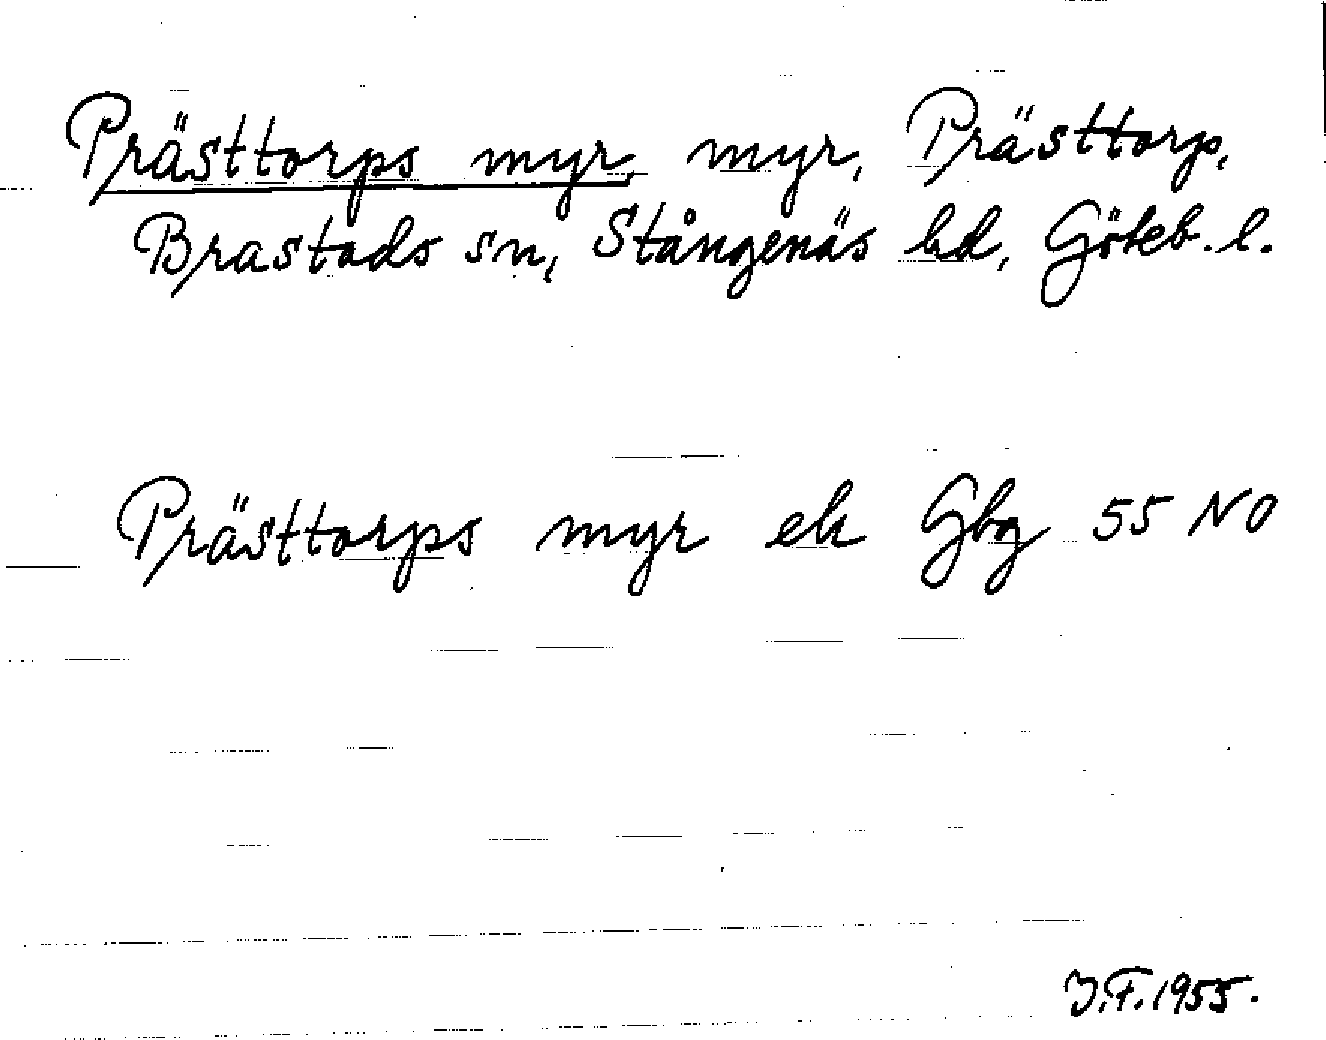 Prästtorps myr, myr, Prästtorp,
Brastads sn, Stångenäs hd, Göteb. l.
Prästtorps myr ek Gbg 55 NO
J.F. 1955.